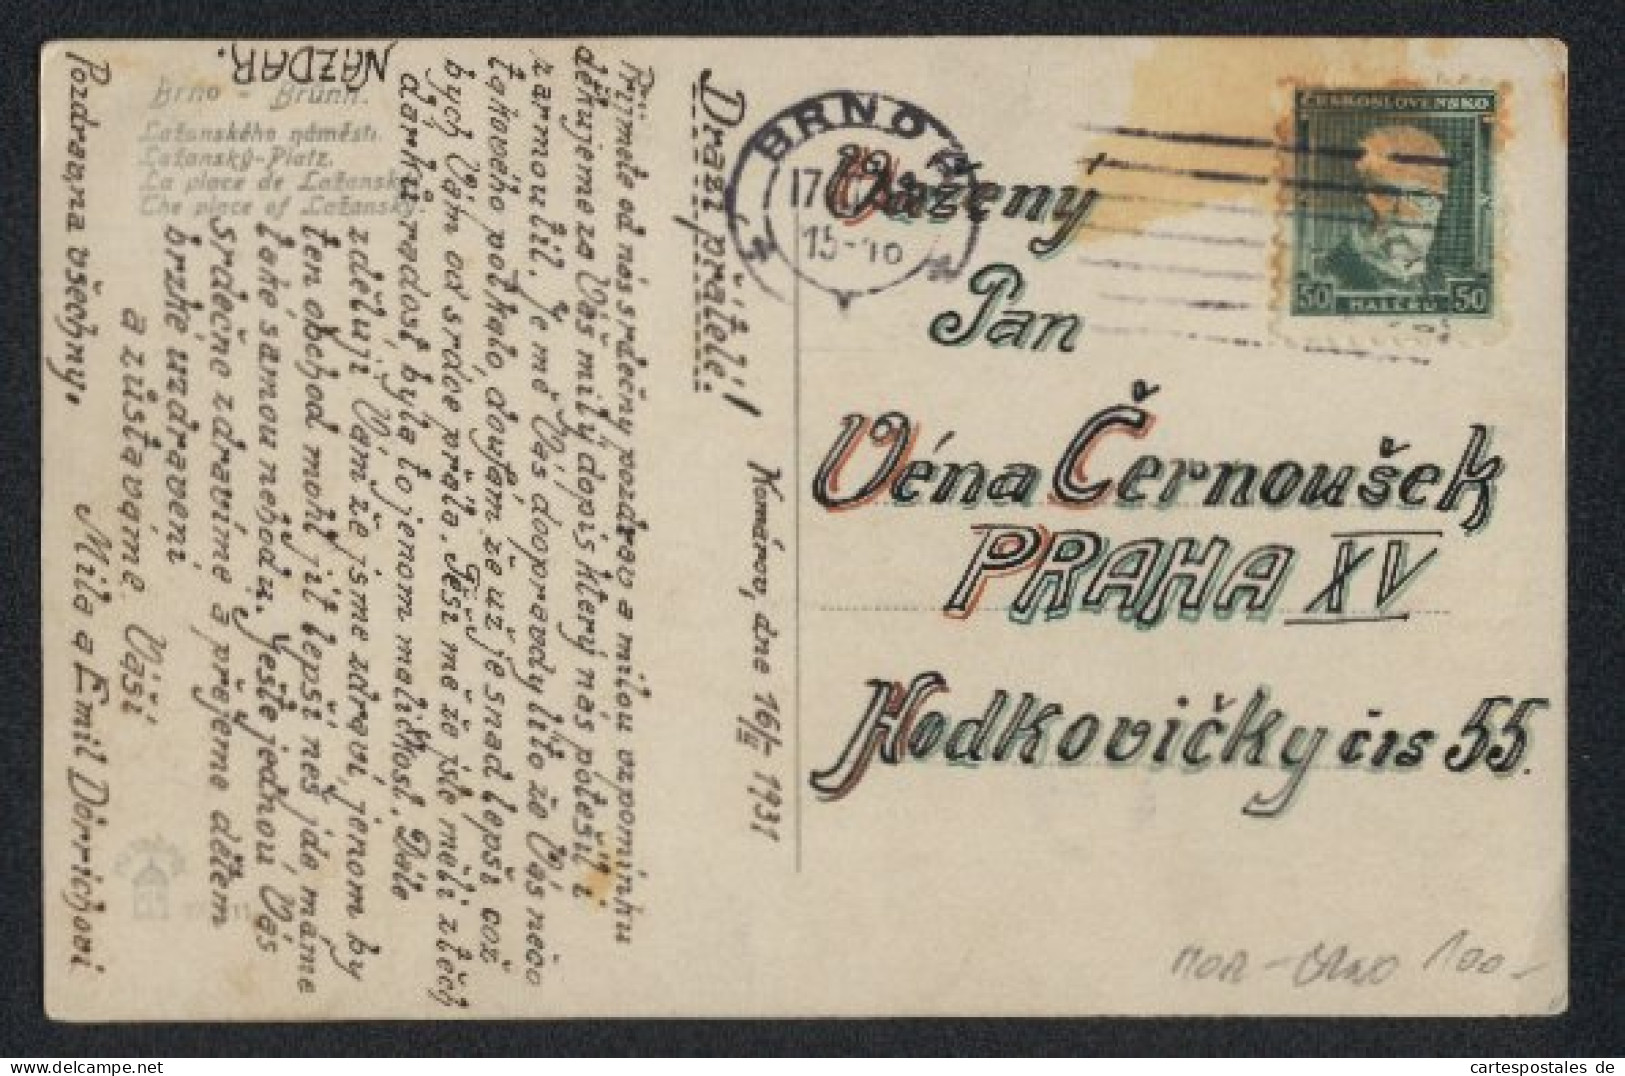 NAZDAR.
Brno - Brünn.
Lažanského náměstí.
Lažanský-Platz.
La place de Lažansky.
The place of Lažansky.
Drazí přátelé!
Komárov, dne 16/II 1931
Přijměte od nás srdečný pozdrav a milou vzpomínku
děkujeme za Váš milý dopis který nás potěšil i
zarmoutil. Je mě Vás doopravdy líto že Vás něco
takového potkalo, doufám že už je snad lepší což
bych Vám od srdce přála. Těší mě že jste měli z těch
dárků radost, byla to jenom maličkost. Dále
zděluji Vám že jsme zdraví, jenom by
ten obchod mohl jít lepší neš jde máme
také samou nehodu. Ještě jednou Vás
srdečne zdravíme a přejeme dětem
brzké uzdravení
a zůstáváme Vaši
Míla a Emil Dörrichovi
Pozdrav na všechny.
BRNO
17
15-
ČESKOSLOVENSKO
50 HALÉŘŮ 50
Vážený
Pan
Véna Černoušek
PRAHA XV
Hodkovičky čis 55.
100-
cartespostales de